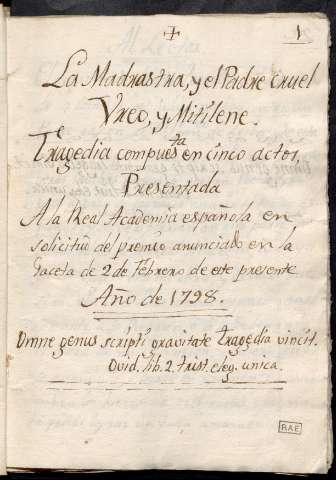 +
1
La Madrastra, y el Padre cruel
Vreo, y Mitilene.
Tragedia compuesta en cinco actos,
Presentada
A la Real Academia española en
solicitud del premio anunciado en la
Gaceta de 2 de Febrero de este presente
Año de 1798.
Omne genus scripti gravitate tragedia vincit.
Ovid. lib. 2. trist. eleg. unica.
RAE